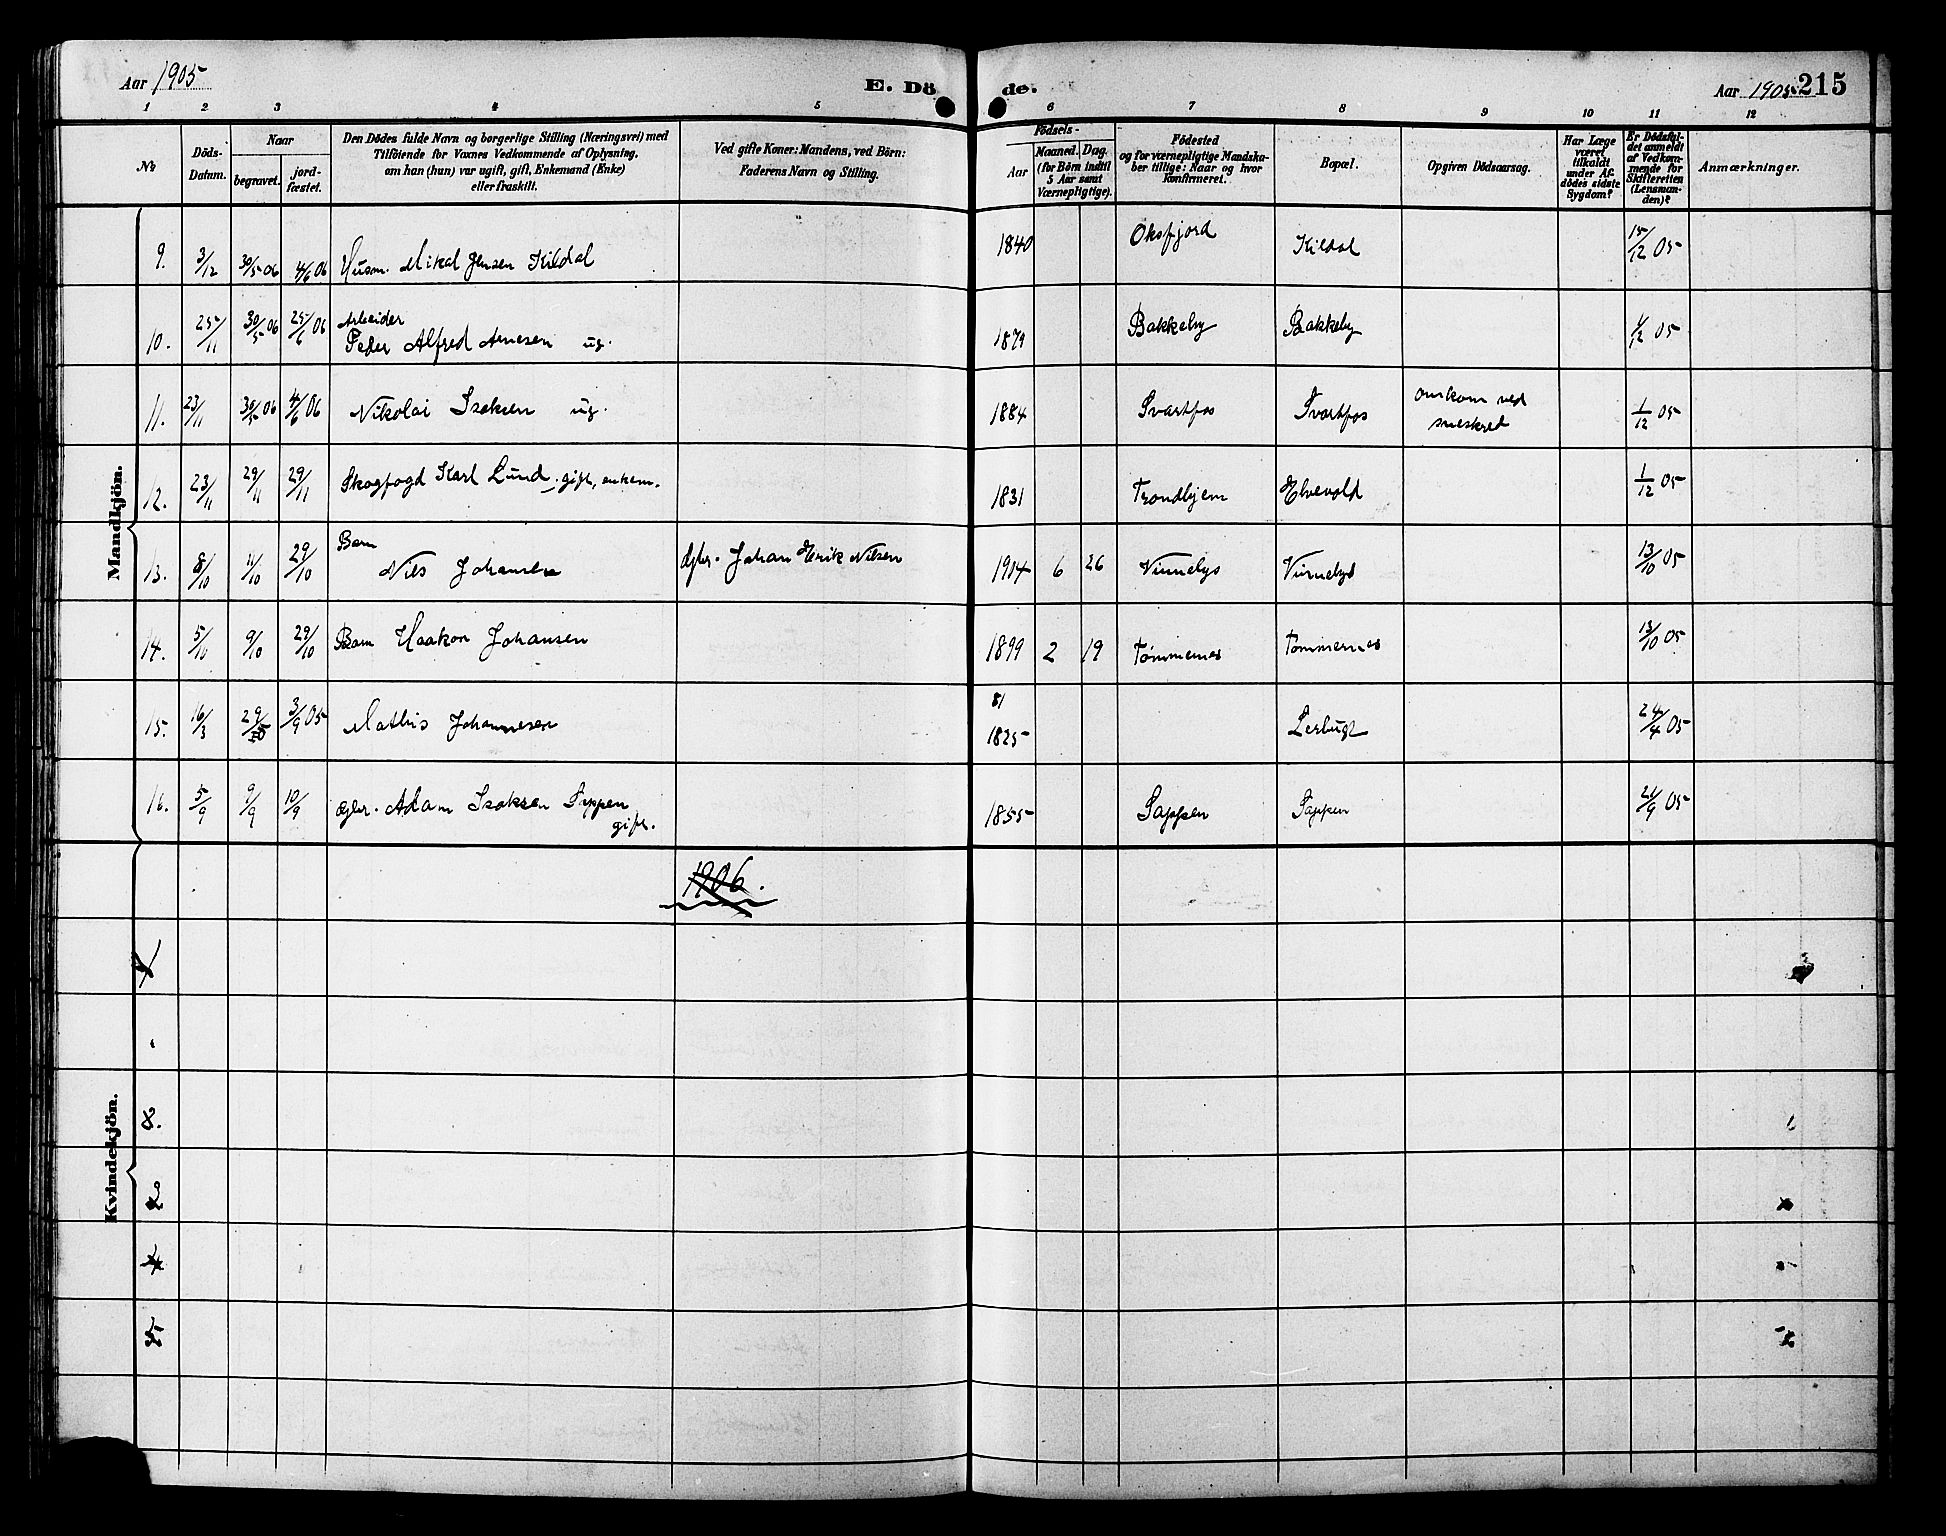 Aar 1905
E. Dö
de.
Aar 1905 215
1 2 3 4 5 6 7 8 9 10 11 12
No
Döds-
Datum.
Naar
begravet.
jord-
fæstet.
Den Dödes fulde Navn og borgerlige Stilling (Næringsvei) med
Tilföiende for Voxnes Vedkommende af Oplysning,
om han (hun) var ugift, gift, Enkemand (Enke)
eller fraskilt.
Ved gifte Koner: Mandens, ved Börn:
Faderens Navn og Stilling.
Födsels-
Aar
Maaned. Dag.
(for Börn indtil
5 Aar samt
Værnepligtige).
Födested
og for værnepligtige Mandska-
ber tillige: Naar og hvor
Konfirmeret.
Bopæl.
Opgiven Dödsaarsag.
Har Læge
været
tilkaldt
under Af-
dödes sidste
Sygdom?
Er Dödsfal-
det anmeldt
af Vedkom-
mende for
Skifteretten
(Lensman-
den)?
Anmærkninger.
Mandkjön.
9. 3/12 30/5 06 4/6 06 Husm. Mikal Jensen Kildal 1840 Oksfjord Kildal 15/12 05
10. 25/11 30/5 06 25/6 06 Arbeider
Peder Alfred Arnesen ug. 1879 Bakkeby Bakkeby 1/12 05
11. 23/11 30/5 06 4/6 06 Nikolai Isaksen ug. 1884 Svartfos Svartfos omkom ved
sneskred 1/12 05
12. 23/11 29/11 29/11 Skogfogd Karl Lund, gift, enkem. 1831 Trondhjem Elvevold 1/12 05
13. 8/10 11/10 29/10 Barn
Nils Johansen Johan Erik Nilsen 1904 6 26 13/10 05
14. 5/10 9/10 29/10 Barn Haakon Johansen 1899 2 19 Tømmernes Tømmernes 13/10 05
15. 16/3 29/ 3/9 05 Mathis Johannesen 81
1825 Lerbugt 24/4 05
16. 5/9 9/9 10/9 Adam Isaksen Sappen
gift. 1855 Sappen Sappen 21/9 05
1906.
Kvindekjön.
8.
2
4